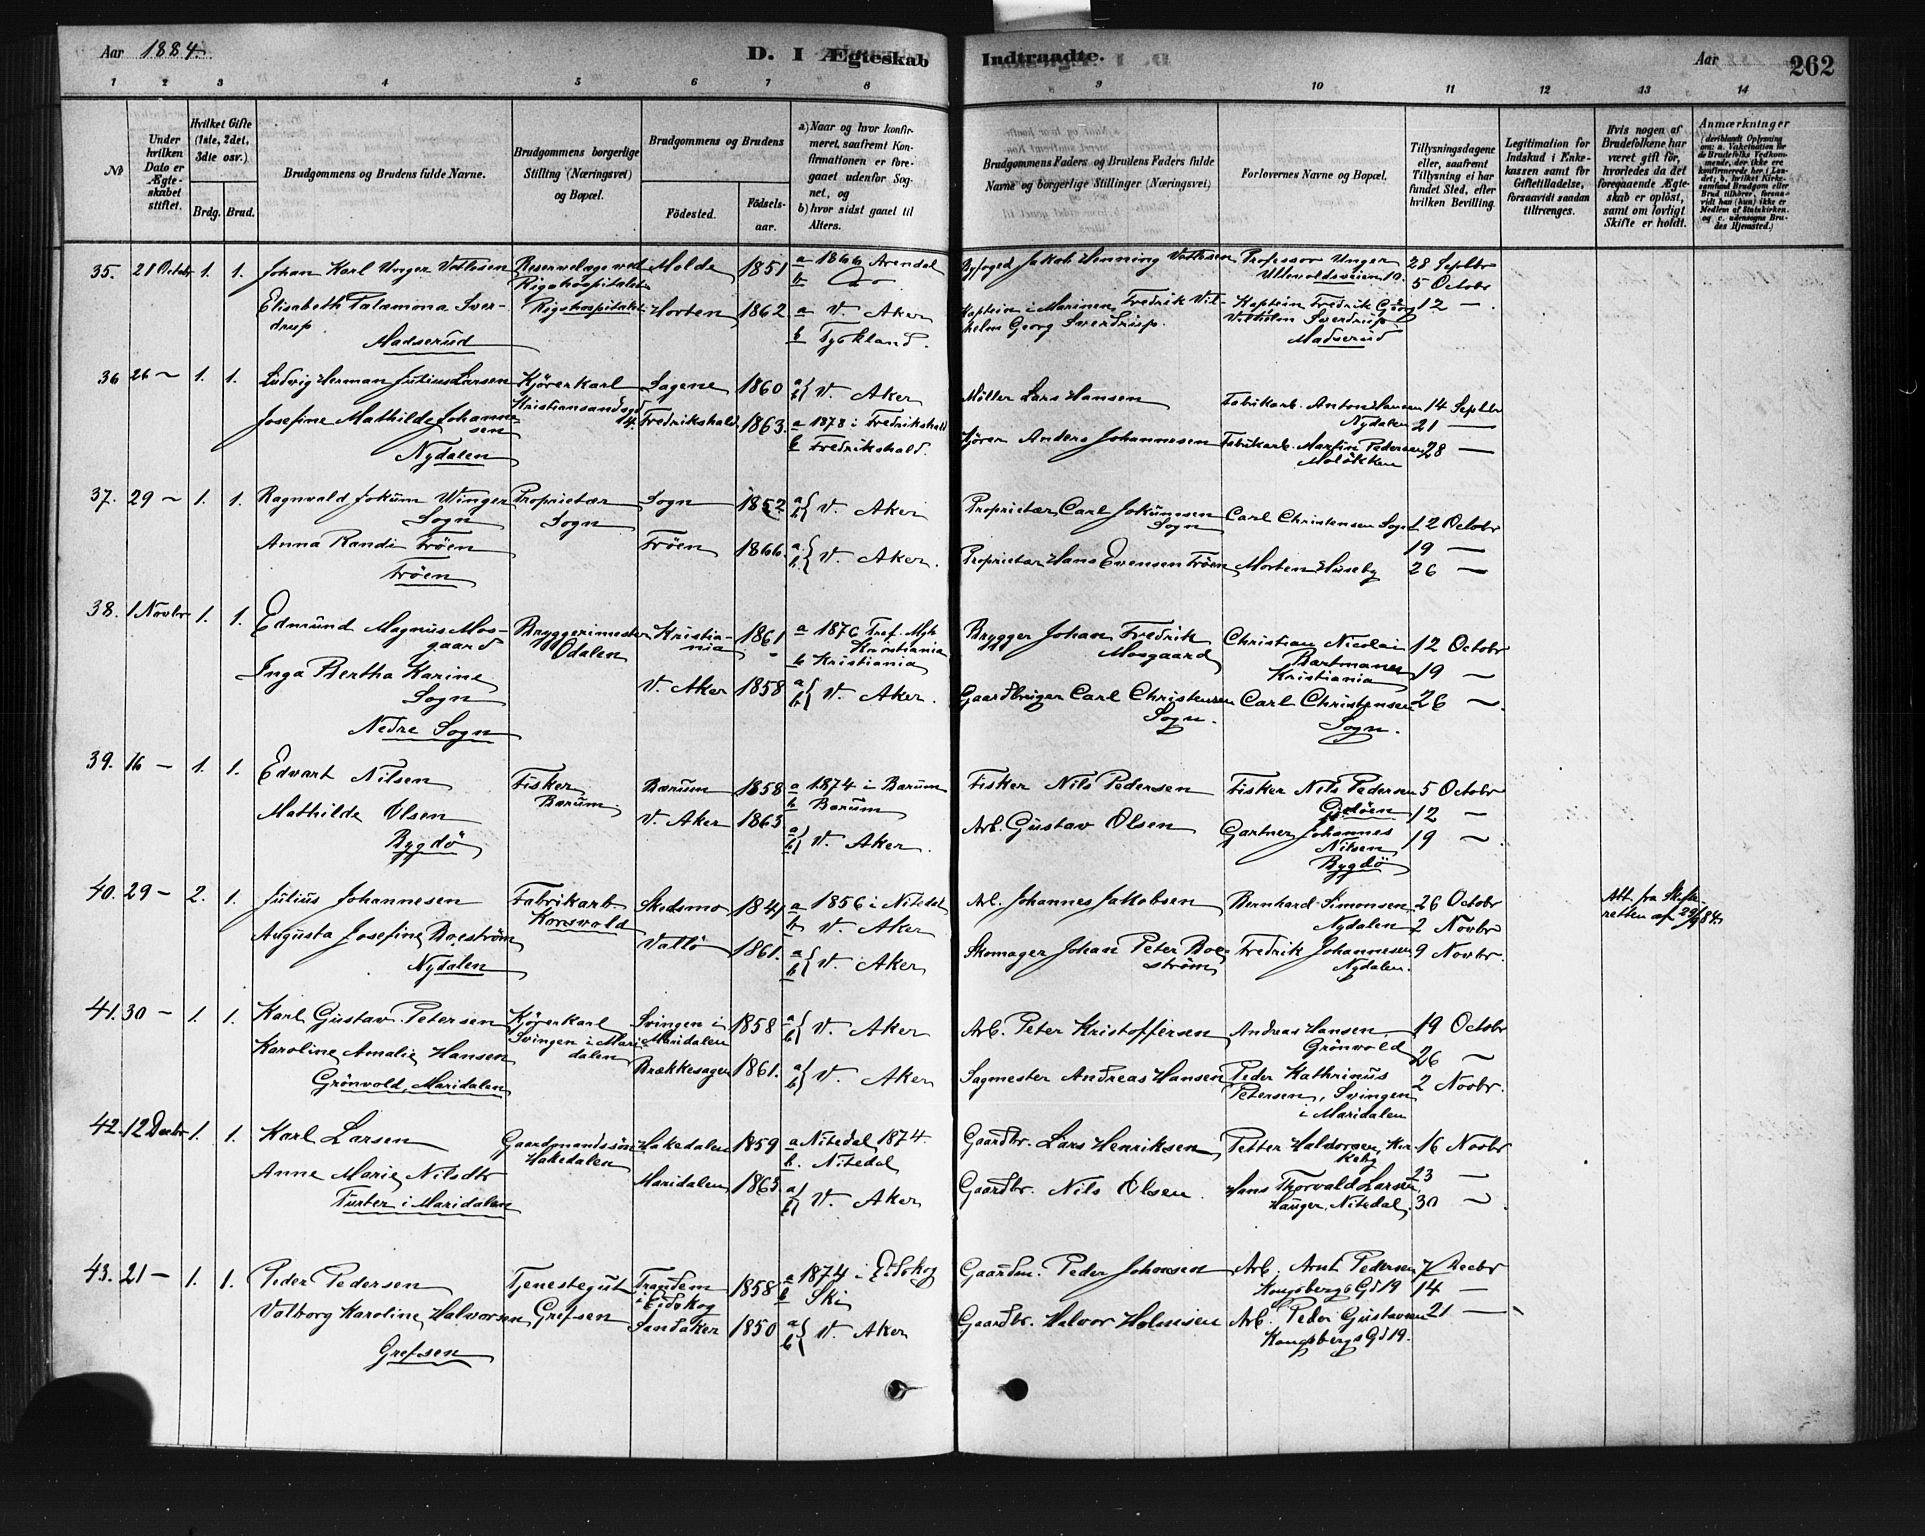 Aar 1884.
D. I Ægteskab Indtraadte.
Aar 262
1 2 3 4 5 6 7 8 9 10 11 12 13 14
No
Under hvilken Dato er Ægteskabet stiftet.
Hvilket Gifte (1ste, 2det, 3die osv.)
Brdg. Brud.
Brudgommens og Brudens fulde Navne.
Brudgommens borgerlige Stilling (Næringsvei) og Bopæl.
Brudgommens og Brudens
Fødested.
Fødselsaar.
a) Naar og hvor konfirmeret, saafremt Konfirmationen er foregaaet udenfor Sognet, og
b) hvor sidst gaaet til Alters.
Brudgommens Faders og Brudens Faders fulde Navne og borgerlige Stillinger (Næringsvei)
Forlovernes Navne og Bopæl.
Tillysningsdagene eller, saafremt Tillysning ei har fundet Sted, efter hvilken Bevilling.
Legitimation for Indskud i Enkekassen samt for Giftetilladelse, forsaavidt saadan tiltrænges.
Hvis nogen af Brudefolkene har været gift før, hvorledes da det foregaaende Ægteskab er opløst, samt om lovligt Skifte er holdt.
Anmærkninger
(deriblandt Oplysning om: a. Vakcination for de Brudefolks Vedkommende, der ikke ere konfirmerede her i Landet; b. hvilket Kirkesamfund Brudgom eller Brud tilhører, forsaavidt han (hun) ikke er Medlem af Statskirken, og c. udensogns Brudes Hjemsted.)
35. 21 Octobr 1. 1. Johan Karl Unger Vetlesen Reservelæge ved Rigshospitalet Molde 1851 a 1866 Arendal Byfoged Jakob Henning Vetlesen Professor Unger 28 Septbr
Rigshospitalet b Do Ullevoldsveien 10. 5 Octobr
Elisabeth Palamona Sverdrup Horten 1862. a V. Aker Kaptein i Marinen Fredrik Vilhelm Georg Sverdrup. Kaptein Fredrik Georg Vilhelm Sverdrup 12 —
Madserud b Madserud
36 26 ~ 1. 1. Ludvig Herman Julius Larsen Kjørerkarl Sagene 1860 a b V. Aker Møller Lars Hansen Fabrikarb. Anton Hansen 14 Septbr
Kristiansandsgd 14. Nydalen 21 —
Josefine Mathilde Johannesen Fredrikshald 1863. a 1878 i Fredrikshald Kjører Anders Johannesen Fabrikarb. Martin Pedersen 28 —
Nydalen b Fredrikshald. Moløkken
37. 29 ~ 1. 1. Ragnvald Jokum Winger Proprietær Sogn 1852 a b V. Aker Proprietær Carl Jokumsen Carl Christensen Sogn 12 Octobr
Sogn Sogn Sogn 19 —
Anna Randi Frøen Frøen 1866. a b V. Aker. Proprietær Hans Evensen Frøen Morten Huseby 26 —
Frøen
38. 1 Novbr 1. 1. Edmund Magnus Mosgaard Bryggerimester Kristiania 1861 a 1876 Tref. Mgh Kristiania Brygger Johan Fredrik Mosgaard Christian Nicolai 12 Octobr
Odalen b Kristiania Kristiania 19 ~
Inga Bertha Karine Sogn V. Aker 1858 a b V. Aker. Gaardbruger Carl Christensen Sogn. Carl Christensen Sogn. 26 ~.
Nedre Sogn
39. 16 — 1. 1. Edvart Nilsen Fisker Bærum 1858 a 1874 i Bærum Fisker Nils Pedersen Fisker Nils Pedersen 5 Octobr
Bærum. b Bærum 12 —
Mathilde Olsen V. Aker 1863 a b V. Aker. Arb. Gustav Olsen Gartner Johannes Nilsen 19 ~.
Bygdø Bygdø
40. 29 — 2. 1. Julius Johannesen Fabrikarb Skedsmo 1841 a 1856 i Nitedal Arb. Johannes Jakobsen Bernhard Simonsen 26 Octobr Att. fra Skifteretten af
Korsvold b V. Aker Nydalen 2 Novbr
Augusta Josefine Boeström Vallö 1861. a b V. Aker Skomager Johan Peter Boeström Fredrik Johannesen 9 Novbr.
Nydalen Nydalen.
41. 30 — 1. 1. Karl Gustav Petersen Kjørerkarl Svingen i Maridalen 1858 a b V. Aker Arb. Peter Kristoffersen Andreas Hansen 19 Octobr
Svingen i Maridalen Grönvold 26 ~
Karoline Amalie Hansen Brækkesagen 1861. a b V. Aker Sagmester Andreas Hansen Peder Kathrinus Petersen, Svingen i Maridalen 2 Novbr.
Grönvold, Maridalen
42. 12 Decbr 1. 1. Karl Larsen Gaardmandssøn Hakedalen 1859 a Nitedal 1874. Gaardbr. Lars Henriksen Petter Halvorsen, Kirkeby 16 Novbr
Hakedalen b. Nitedal 23 —
Anne Marie Nilsdtr Maridalen 1863. a b V. Aker Gaardbr. Nils Olsen. Hans Thorvald Larsen, Hauger, Nitedal. 30 ~.
Turter i Maridalen
43. 21 — 1. 1. Peder Pedersen Tjenestegut Trandem i Eidskog 1858 a 1874 i Eidskog Gaardm. Peder Johnsen Arb. Arnt Pedersen 7 Decbr
Grefsen b Ski Kongsbergs Gd 19 14 —
Valborg Karoline Halvorsen Sandaker 1850 a b V. Aker Gaardbr. Halvor Holmsen Arb. Peder Gustavsen 21 —
Grefsen Kongsbergs Gd 19.